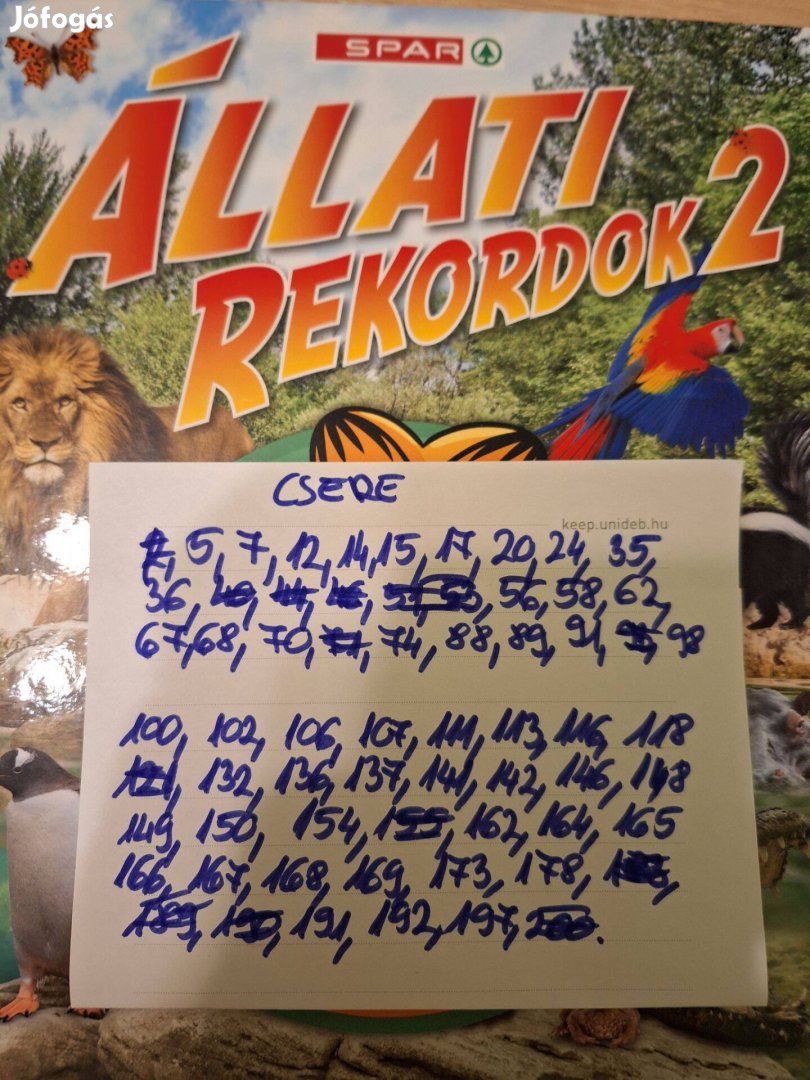 Jófogás
SPAR
ÁLLATI
REKORDOK 2
CSERE
keep.unideb.hu
5, 7, 12, 14, 15, 17, 20, 24, 35,
36, 56, 58, 62,
67, 68, 70, 74, 88, 89, 91, 98
100, 102, 106, 107, 111, 113, 116, 118
121, 132, 136, 137, 141, 142, 146, 148
149, 150, 154, 155, 162, 164, 165
166, 167, 168, 169, 173, 178,
189, 190, 191, 192, 197, 200.